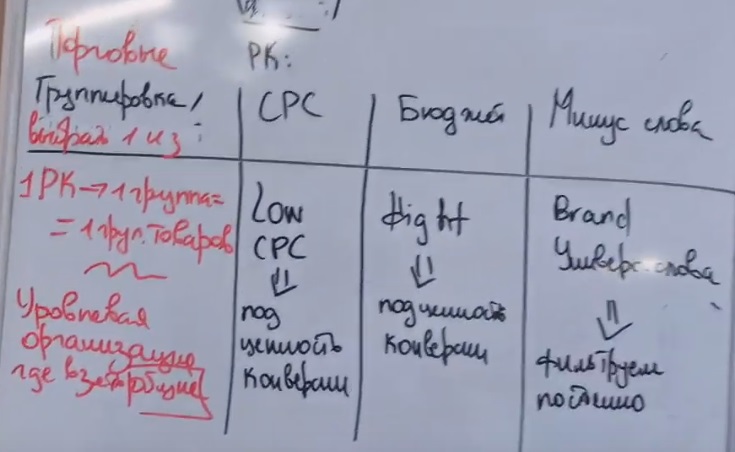 Торговые
РК:
Группировка/
выбрать 1 из:
CPC
Бюджет
Минус слова
1РК→1 группа=
=1 груп. товаров
Low
CPC
⇓
под
ценность
конверсии
Hight
⇓
под ценность
конверсии
Brand
Универс. слова
⇓
фильтруем
постепенно
Уровневая
организация
где в